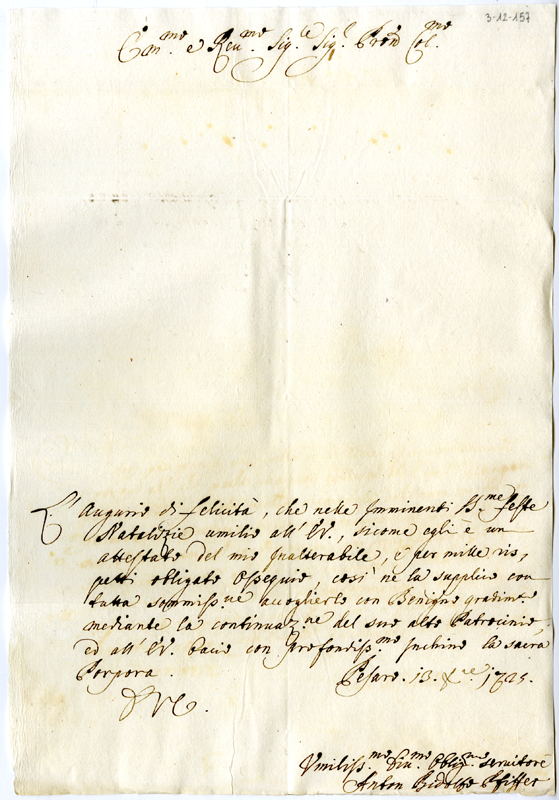 3-12-157
Em.mo e Reu.mo Sig.re Sig.r Pron Col.mo
L'Augurio di felicità, che nelle Imminenti S.me feste
Natalizie umilio all' EV., sicome egli è un
attestato del mio Inalterabile, e per mille ris,
petti obligato Ossequio, così ne la supplico con
tutta sommiss.ne accoglierlo con Benigno gradim.to
mediante la continuaz.ne del suo alto Patrocinio,
ed all' EV. bacio con profondiss.mo Inchino la sacra
Porpora.
Pesaro. 13. Xbre. 1725.
D V E.
Vmiliss.mo Diu.mo Oblig.mo seruitore
Anton Ridolfo Pfiffer